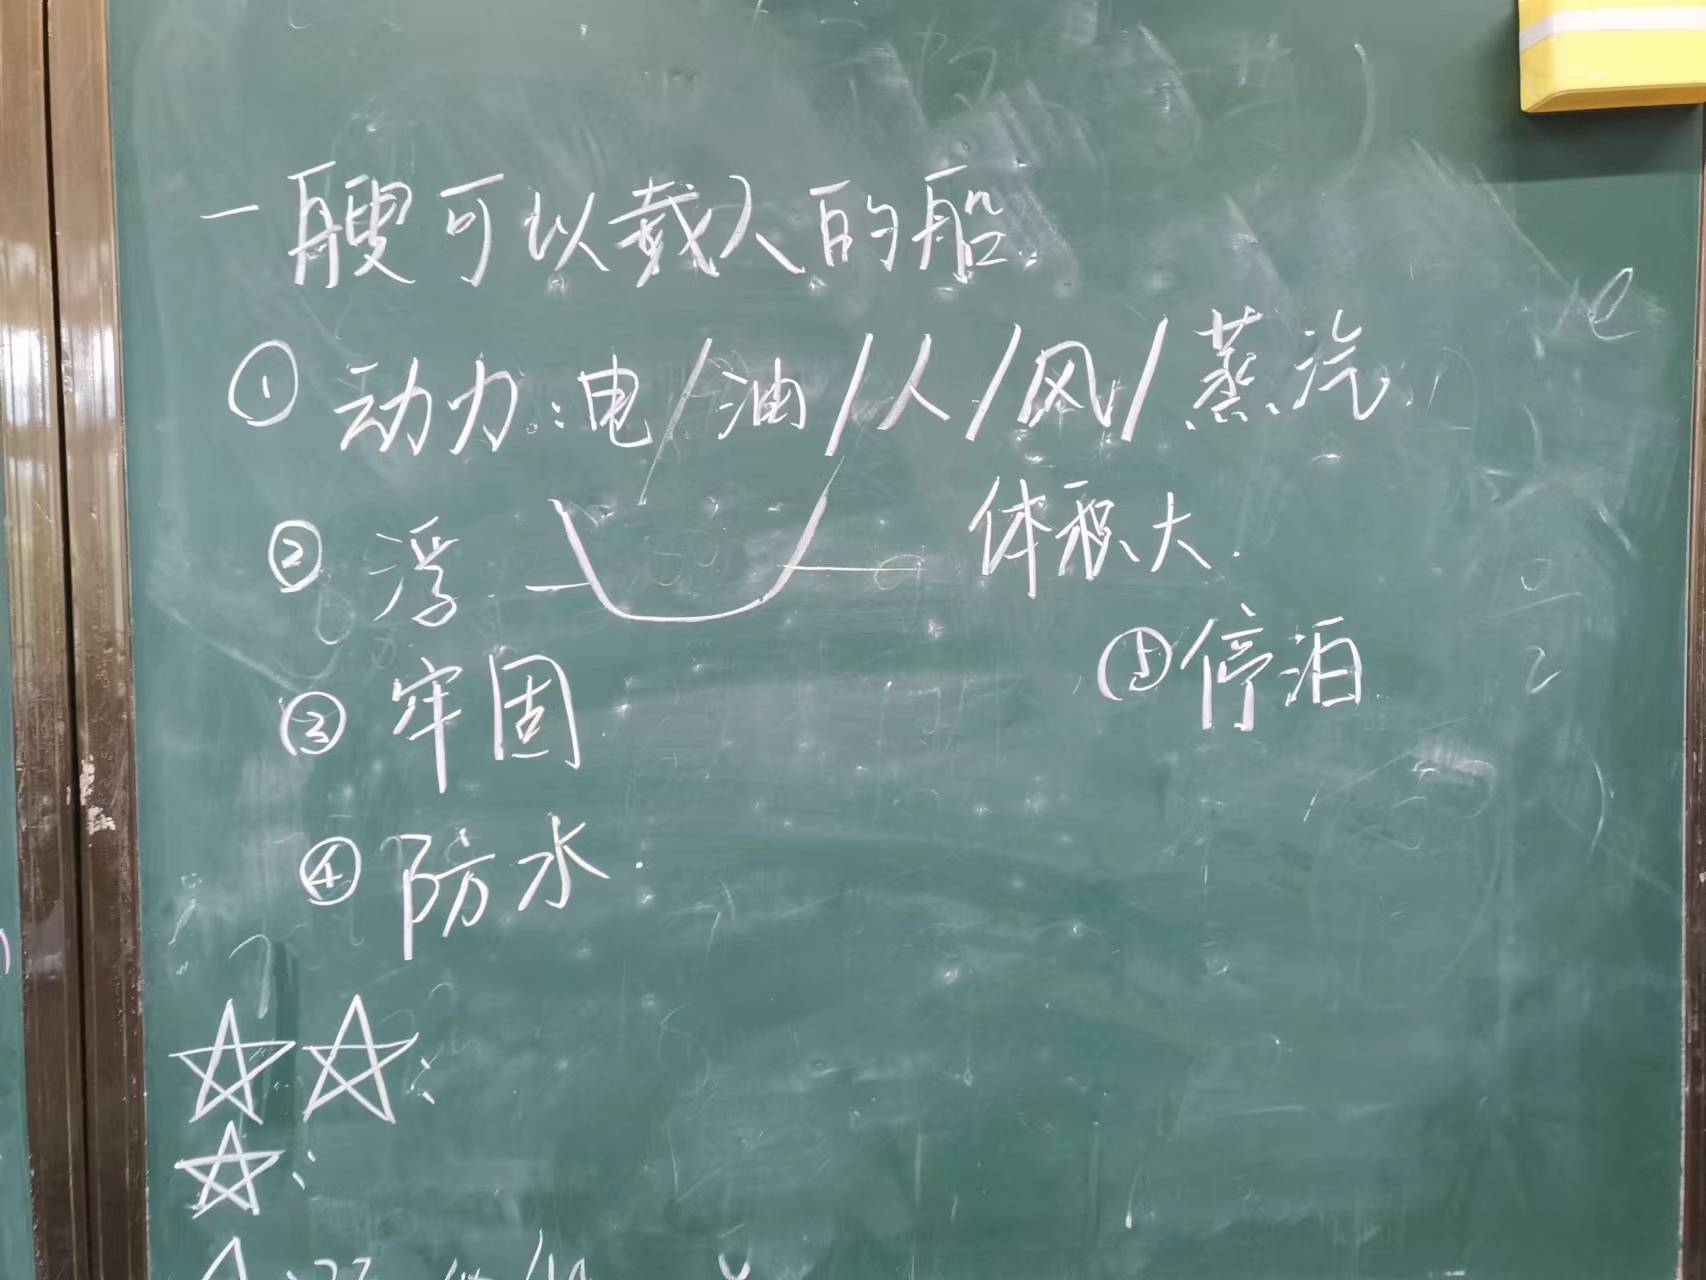 一艘可以载人的船
① 动力:电/油/人/风/蒸汽
② 浮 体积大.
③ 牢固
⑤ 停泊
④ 防水.